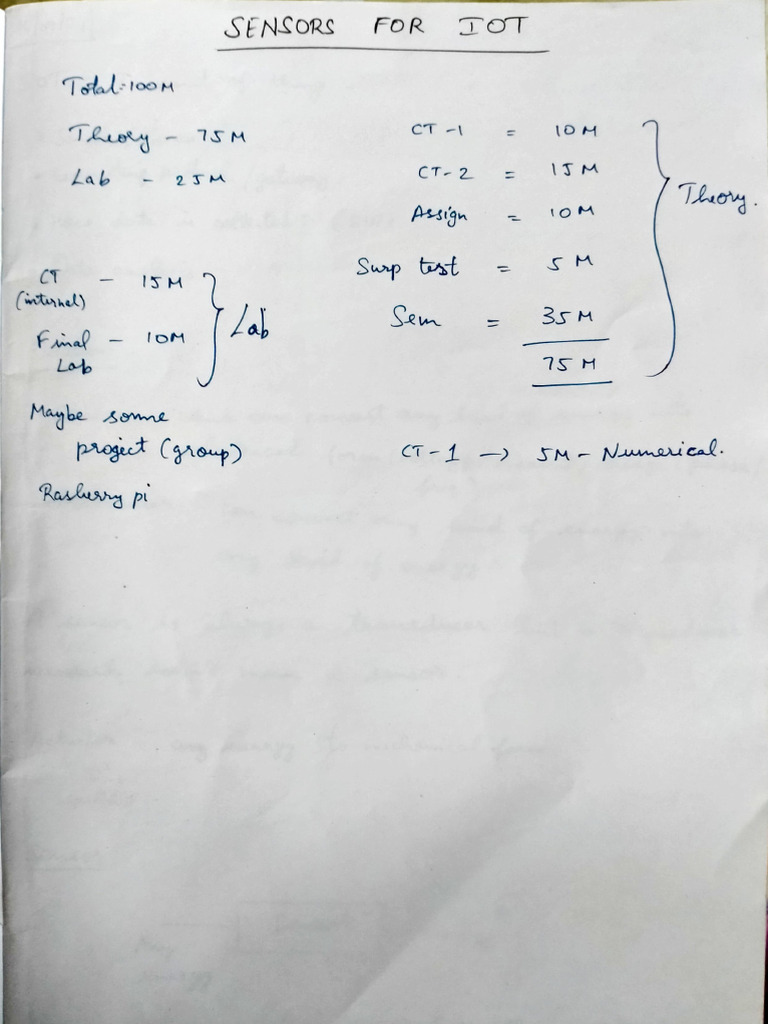 SENSORS FOR IOT
Total:100M
Theory - 75M
Lab - 25M
CT-1 = 10M
CT-2 = 15M
Assign = 10M
Surp test = 5M
Sem = 35M
75M
Theory.
CT - 15M
(internal)
Final - 10M
Lab
Lab
Maybe somme
project (group)
Rasberry pi
CT-1 → 5M - Numerical.